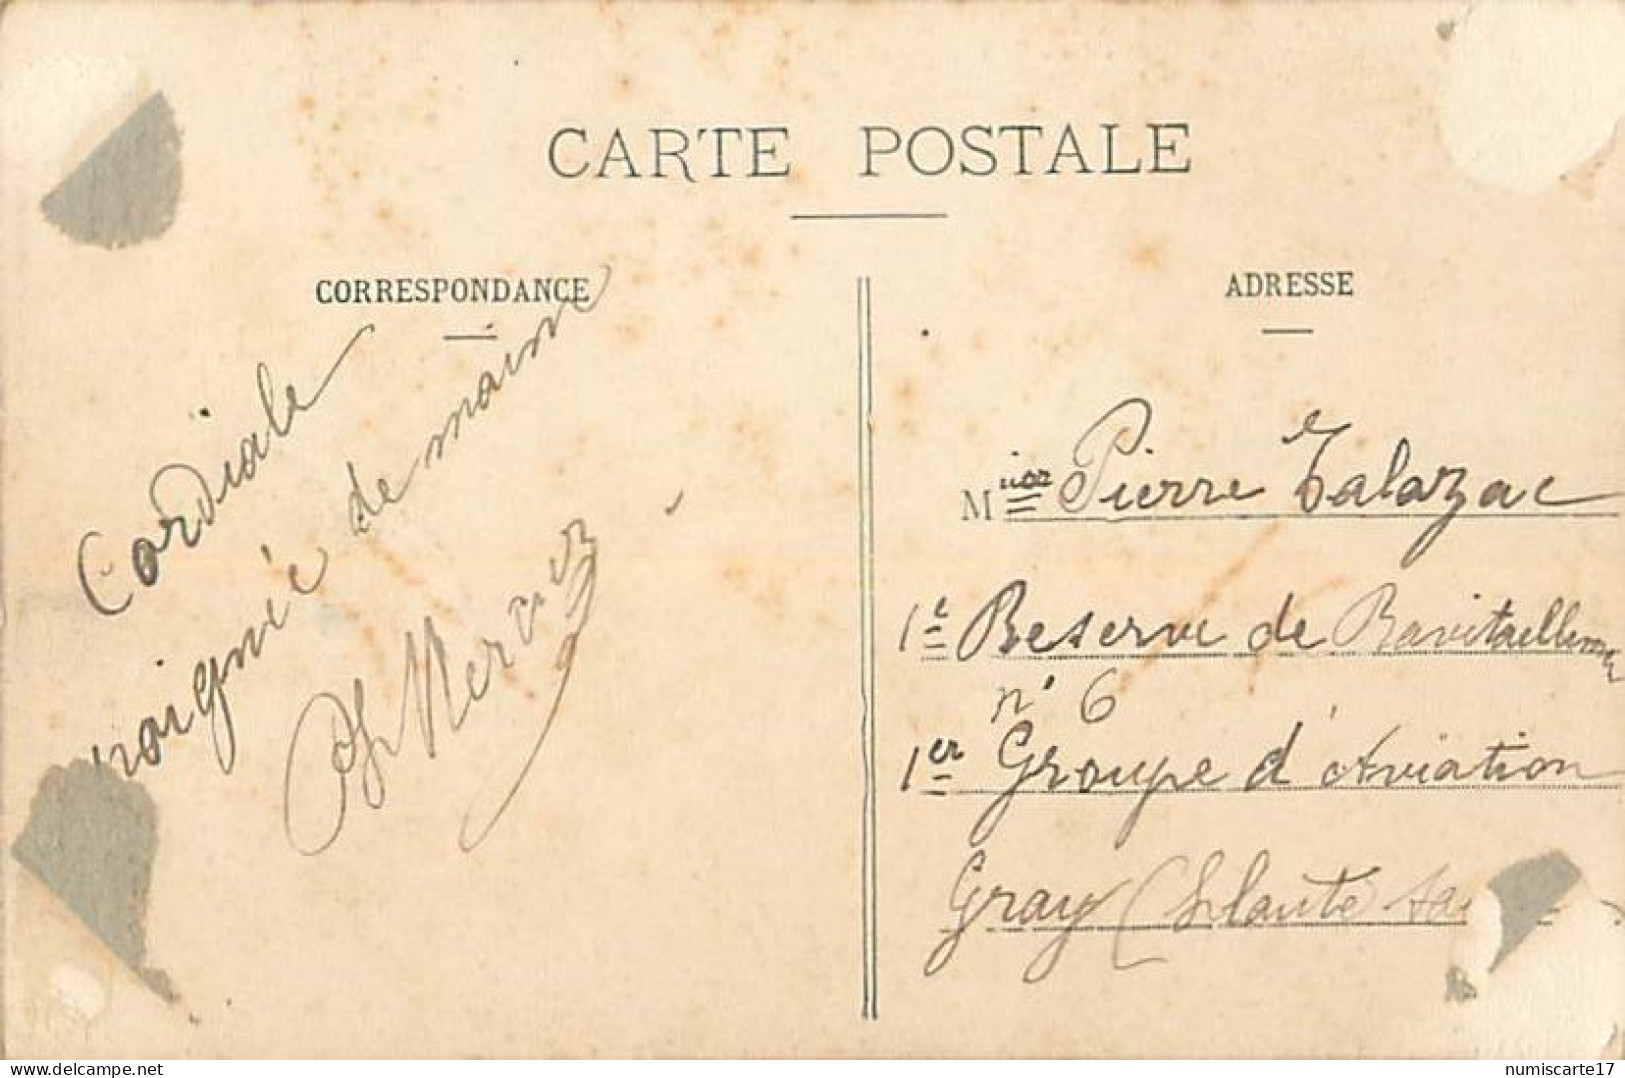 CARTE POSTALE
CORRESPONDANCE
ADRESSE
Cordiale
poignée de main
Mr Pierre Talazac
1e Reserve de Ravitaillement
n° 6
1er Groupe d'Aviation
Gray (Haute
delcampe.net
numiscarte17